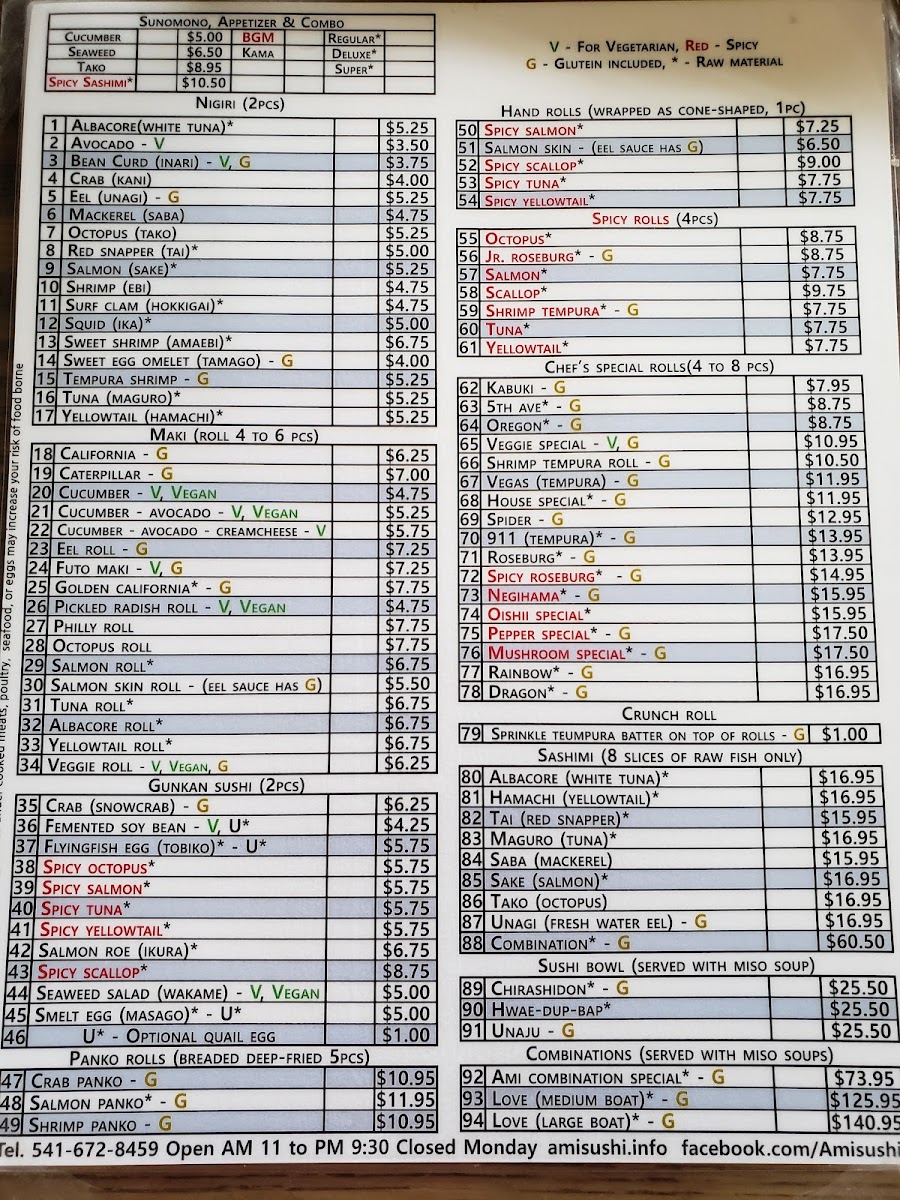 Sunomono, Appetizer & Combo
Cucumber $5.00 BGM Regular*
Seaweed $6.50 Kama Deluxe*
Tako $8.95 Super*
Spicy Sashimi* $10.50
Nigiri (2pcs)
1 Albacore(white tuna)* $5.25
2 Avocado - V $3.50
3 Bean Curd (inari) - V, G $3.75
4 Crab (kani) $4.00
5 Eel (unagi) - G $5.25
6 Mackerel (saba) $4.75
7 Octopus (tako) $5.25
8 Red snapper (tai)* $5.00
9 Salmon (sake)* $5.25
10 Shrimp (ebi) $4.75
11 Surf clam (hokkigai)* $4.75
12 Squid (ika)* $5.00
13 Sweet shrimp (amaebi)* $6.75
14 Sweet egg omelet (tamago) - G $4.00
15 Tempura shrimp - G $5.25
16 Tuna (maguro)* $5.25
17 Yellowtail (hamachi)* $5.25
Maki (roll 4 to 6 pcs)
18 California - G $6.25
19 Caterpillar - G $7.00
20 Cucumber - V, Vegan $4.75
21 Cucumber - avocado - V, Vegan $5.25
22 Cucumber - avocado - creamcheese - V $5.75
23 Eel roll - G $7.25
24 Futo maki - V, G $7.25
25 Golden california* - G $7.75
26 Pickled radish roll - V, Vegan $4.75
27 Philly roll $7.75
28 Octopus roll $7.75
29 Salmon roll* $6.75
30 Salmon skin roll - (eel sauce has G) $5.50
31 Tuna roll* $6.75
32 Albacore roll* $6.75
33 Yellowtail roll* $6.75
34 Veggie roll - V, Vegan, G $6.25
Gunkan sushi (2pcs)
35 Crab (snowcrab) - G $6.25
36 Femented soy bean - V, U* $4.25
37 Flyingfish egg (tobiko)* - U* $5.75
38 Spicy octopus* $5.75
39 Spicy salmon* $5.75
40 Spicy tuna* $5.75
41 Spicy yellowtail* $5.75
42 Salmon roe (ikura)* $6.75
43 Spicy scallop* $8.75
44 Seaweed salad (wakame) - V, Vegan $5.00
45 Smelt egg (masago)* - U* $5.00
46 U* - Optional quail egg $1.00
Panko rolls (breaded deep-fried 5pcs)
47 Crab panko - G $10.95
48 Salmon panko* - G $11.95
49 Shrimp panko - G $10.95
V - For Vegetarian, Red - Spicy
G - Glutein included, * - Raw material
Hand rolls (wrapped as cone-shaped, 1pc)
50 Spicy salmon* $7.25
51 Salmon skin - (eel sauce has G) $6.50
52 Spicy scallop* $9.00
53 Spicy tuna* $7.75
54 Spicy yellowtail* $7.75
Spicy rolls (4pcs)
55 Octopus* $8.75
56 Jr. roseburg* - G $8.75
57 Salmon* $7.75
58 Scallop* $9.75
59 Shrimp tempura* - G $7.75
60 Tuna* $7.75
61 Yellowtail* $7.75
Chef's special rolls(4 to 8 pcs)
62 Kabuki - G $7.95
63 5th ave* - G $8.75
64 Oregon* - G $8.75
65 Veggie special - V, G $10.95
66 Shrimp tempura roll - G $10.50
67 Vegas (tempura) - G $11.95
68 House special* - G $11.95
69 Spider - G $12.95
70 911 (tempura)* - G $13.95
71 Roseburg* - G $13.95
72 Spicy roseburg* - G $14.95
73 Negihama* - G $15.95
74 Oishii special* $15.95
75 Pepper special* - G $17.50
76 Mushroom special* - G $17.50
77 Rainbow* - G $16.95
78 Dragon* - G $16.95
Crunch roll
79 Sprinkle teumpura batter on top of rolls - G $1.00
Sashimi (8 slices of raw fish only)
80 Albacore (white tuna)* $16.95
81 Hamachi (yellowtail)* $16.95
82 Tai (red snapper)* $15.95
83 Maguro (tuna)* $16.95
84 Saba (mackerel) $15.95
85 Sake (salmon)* $16.95
86 Tako (octopus) $16.95
87 Unagi (fresh water eel) - G $16.95
88 Combination* - G $60.50
Sushi bowl (served with miso soup)
89 Chirashidon* - G $25.50
90 Hwae-dup-bap* $25.50
91 Unaju - G $25.50
Combinations (served with miso soups)
92 Ami combination special* - G $73.95
93 Love (medium boat)* - G $125.95
94 Love (large boat)* - G $140.95
Tel. 541-672-8459 Open AM 11 to PM 9:30 Closed Monday amisushi.info facebook.com/Amisushi
cooked meats, poultry, seafood, or eggs may increase your risk of food borne